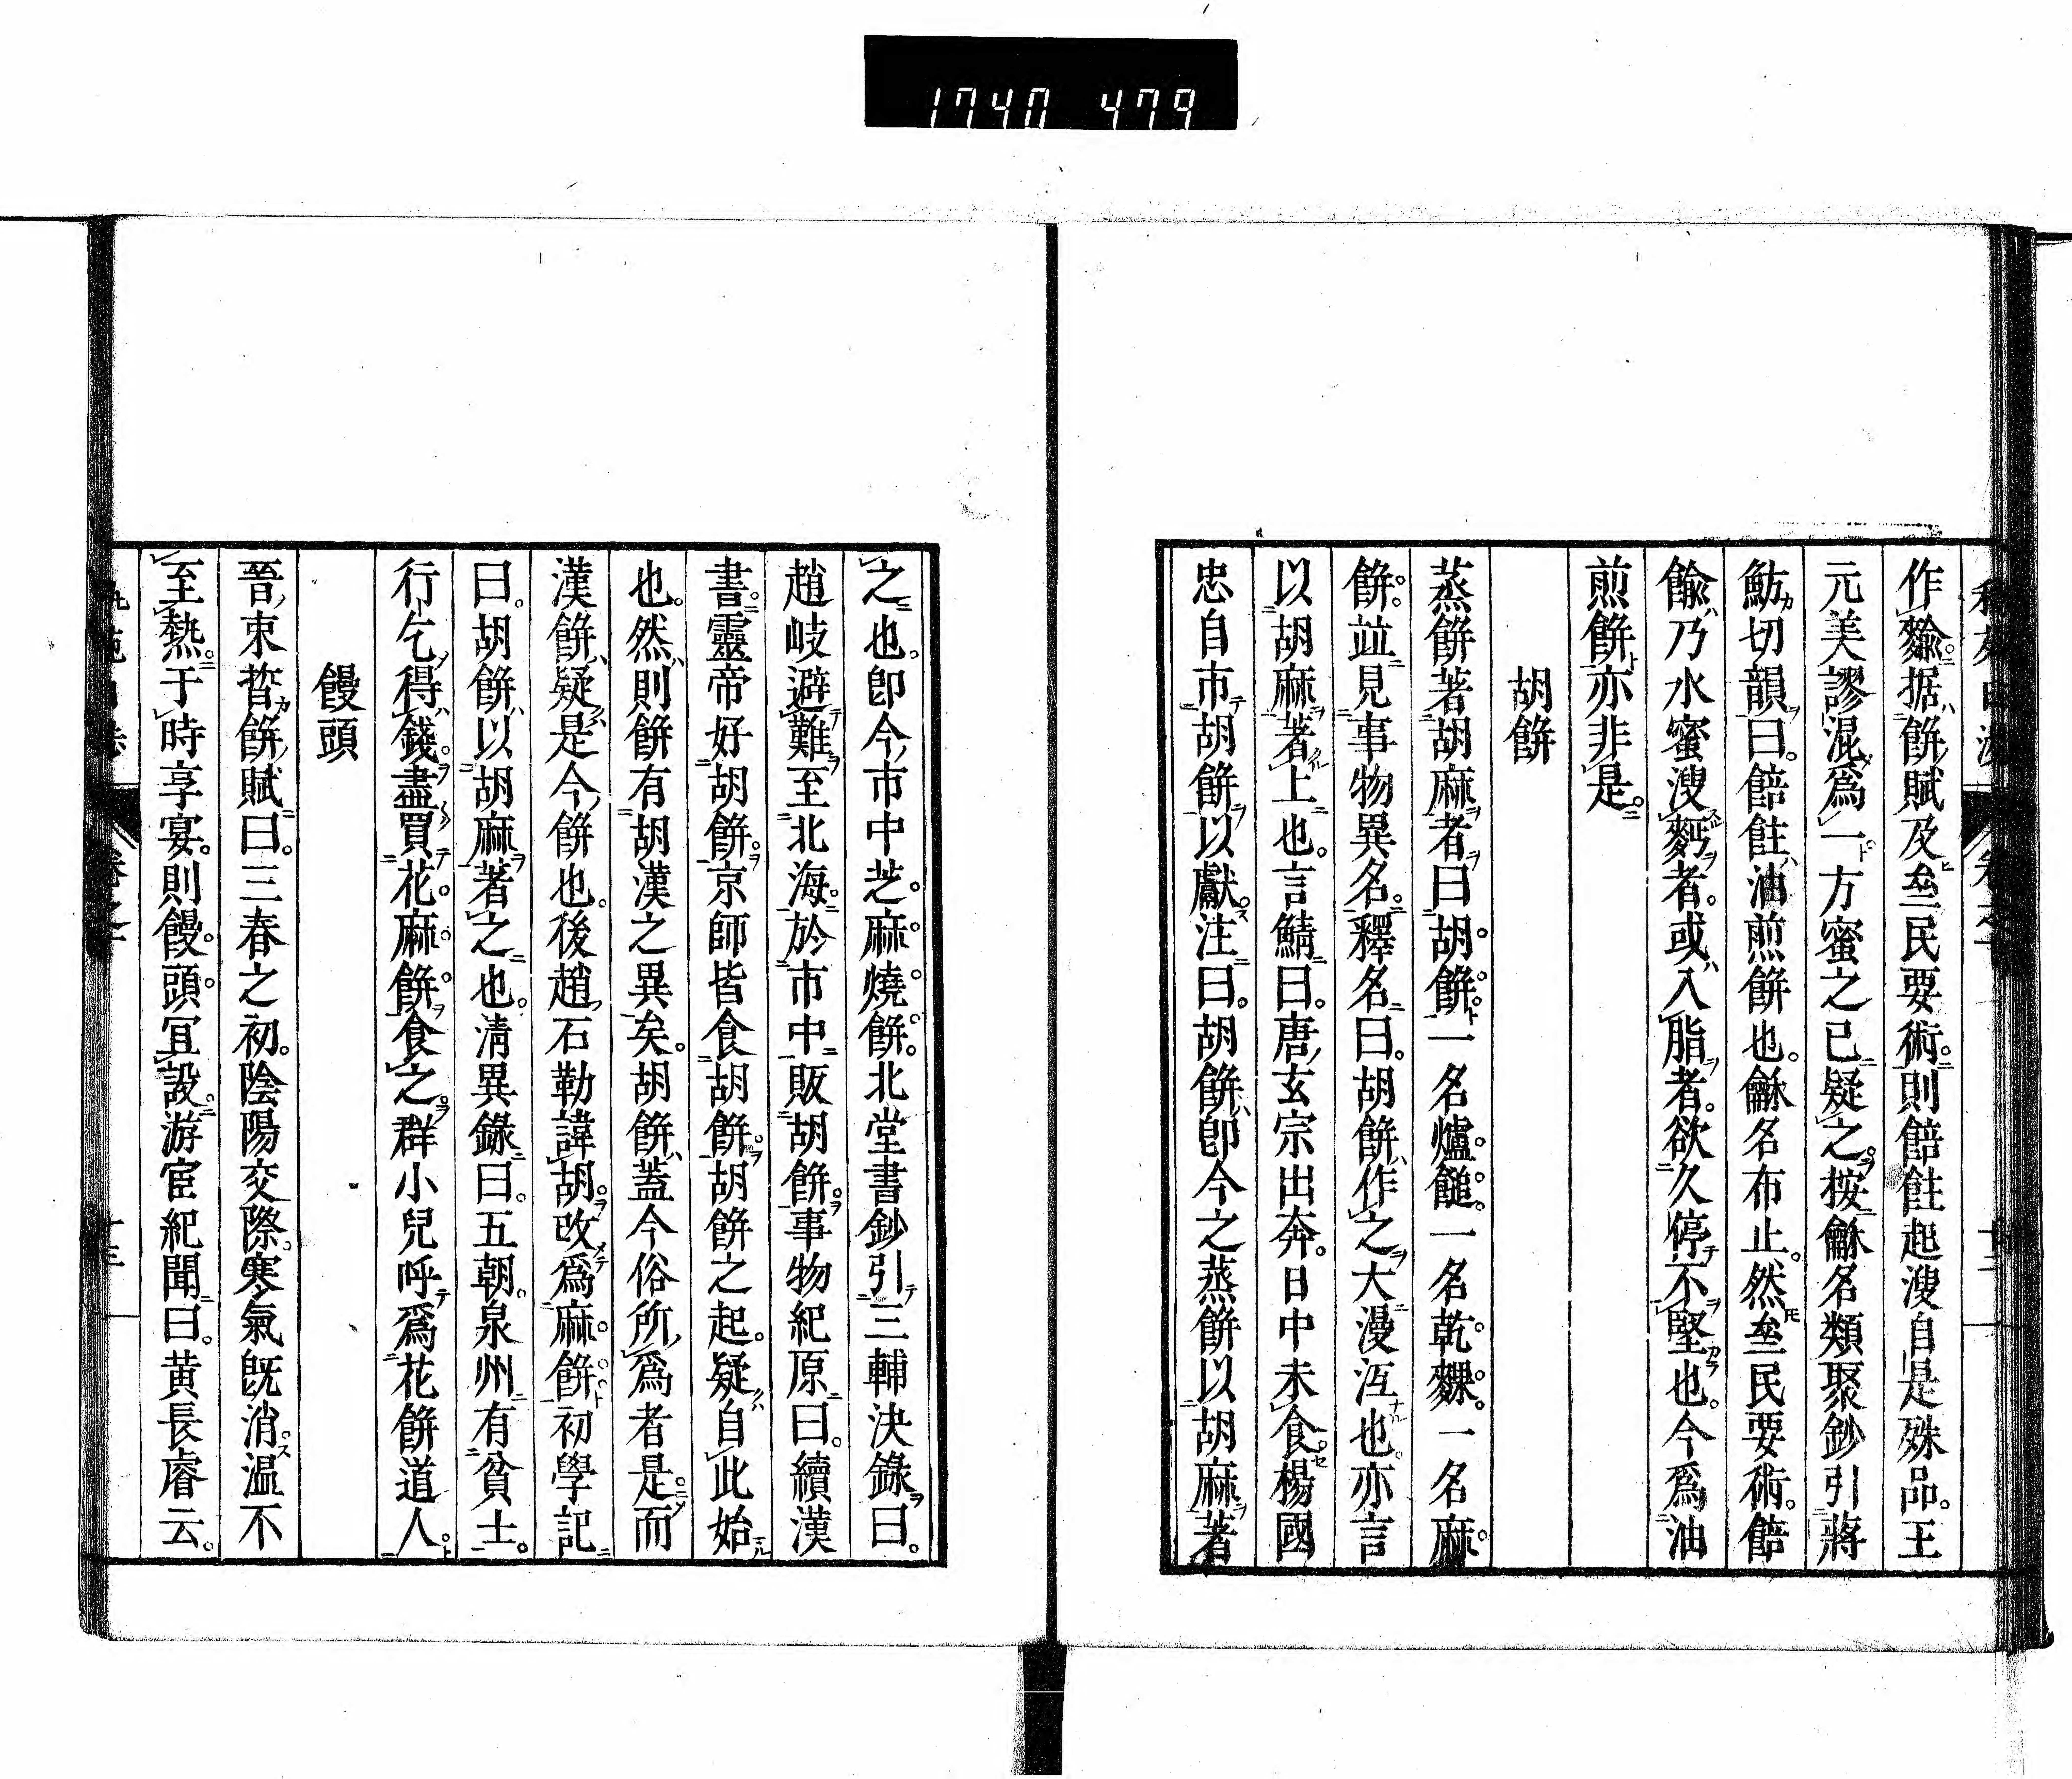 1740 479
作䬾据餅賦及㕘民要術則餢飳起溲自是殊品王
元美謬混爲一方蜜之已疑之按龢名類聚鈔引蔣
魴切韻曰餢飳油煎餅也龢名布止然㕘民要術餢
䬾乃水蜜溲麪者或入脂者欲久停不堅也今爲油
煎餅亦非是
胡餅
蒸餅著胡麻者曰胡餅一名爐䭔一名乾粿一名麻
餅竝見事物異名釋名曰胡餅作之大漫沍也亦言
以胡麻著上也言鯖曰唐玄宗出奔日中未食楊國
忠自市胡餅以獻注曰胡餅即今之蒸餅以胡麻著
之也卽今市中芝麻燒餅北堂書鈔引三輔決錄曰
趙岐避難至北海於市中販胡餅事物紀原曰續漢
書靈帝好胡餅京師皆食胡餅胡餅之起疑自此始
也然則餅有胡漢之異矣胡餅蓋今俗所爲者是而
漢餅疑是今餅也後趙石勒諱胡改爲麻餅初學記
曰胡餅以胡麻著之也淸異錄曰五朝泉州有貧士
行乞得錢盡買花麻餅食之群小兒呼爲花餅道人
饅頭
晉束晳餅賦曰三春之初陰陽交際寒氣既消温不
至熱于時享宴則饅頭冝設游宦紀聞曰黃長睿云